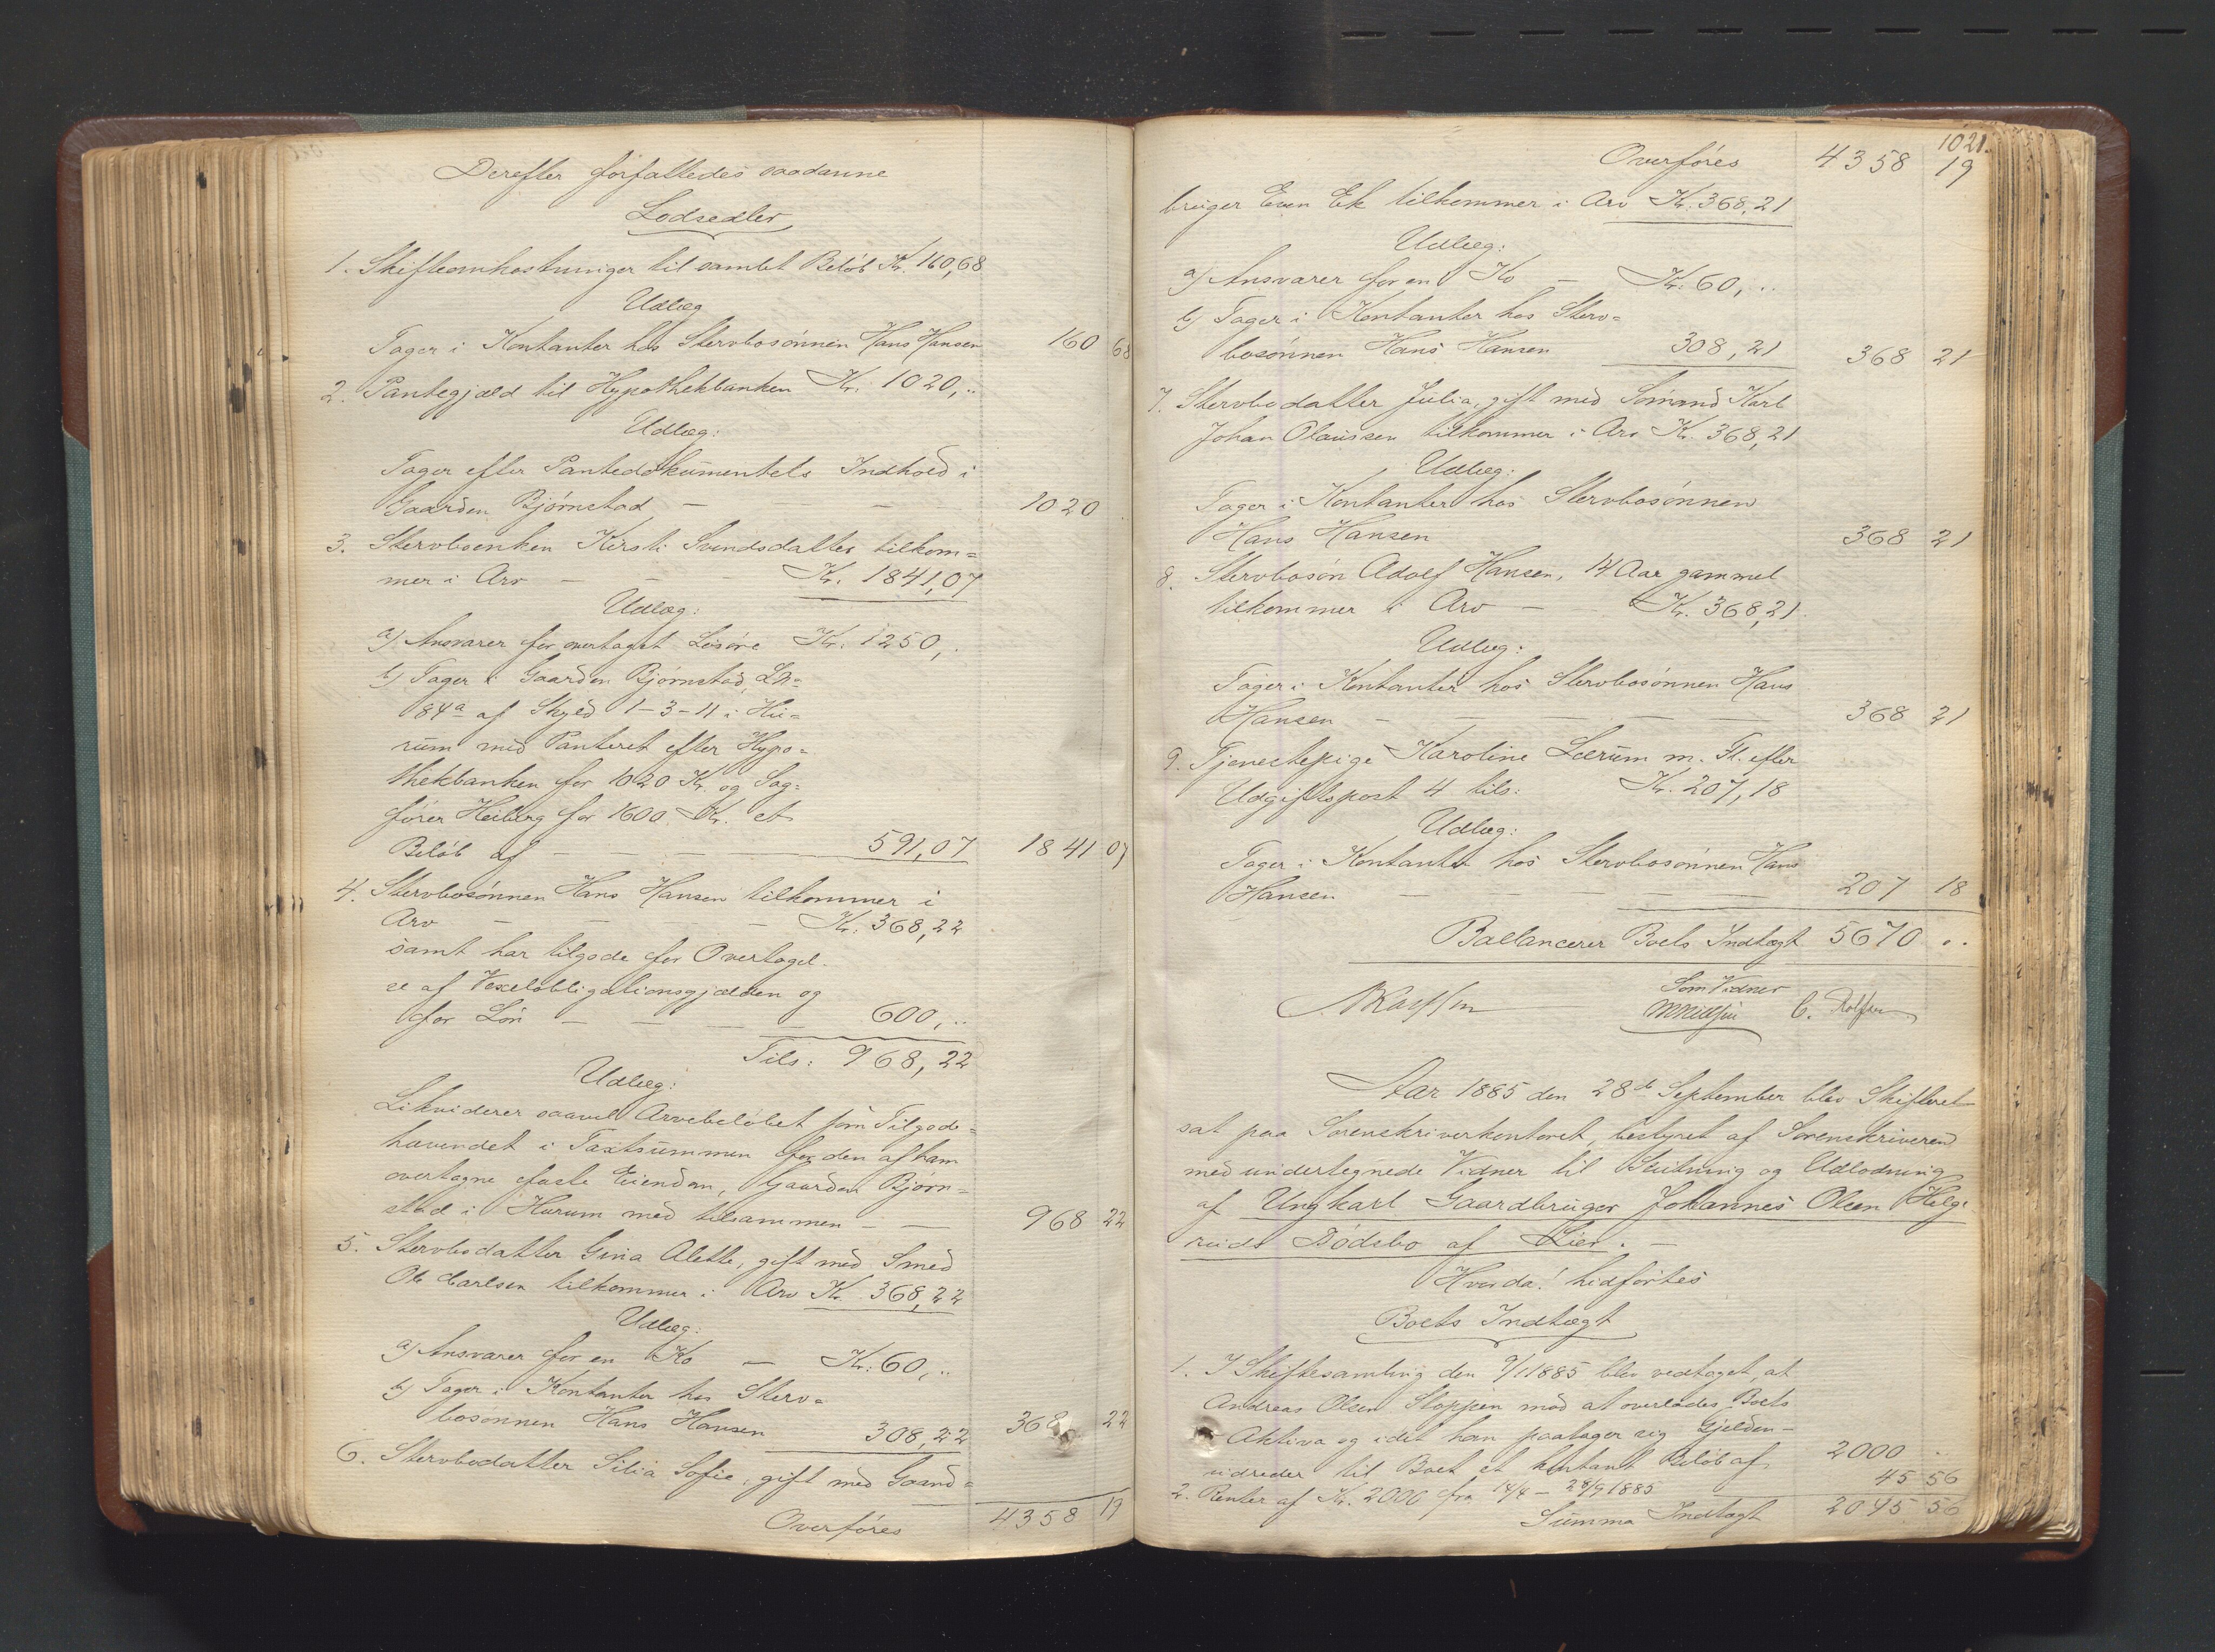 Derefter forfattedes saadanne
Lodsedler
1. Skifteomkostninger til samlet Beløb Kr. 160,68
Udlæg
Tager i Kontanter hos Stervbosønnen Hans Hansen 160 68
2. Pantegjæld til Hypothekbanken Kr. 1020,..
Udlæg:
Tager efter Pantedokumentets Indhold i
Gaarden Bjørnstad — — 1020 .
3. Stervboenken Kirsti Svendsdatter tilkom=
mer i Arv — — — Kr. 1841,07
Udlæg:
a) Ansvarer for overtaget Løsøre Kr. 1250,..
b) Tager i Gaarden Bjørnstad, LN=
84a af Skyld 1-3-11 i Hu=
rum med Panteret efter Hypo=
thekbanken for 1020 Kr. og Sag=
fører Heiberg for 1600 Kr. et
Beløb af — — — 591,07 1841 07
4. Stervbosønnen Hans Hansen tilkommer i
Arv — — — Kr. 368,22
samt har tilgode for Overtagel.
se af Vexelobligationsgjælden og
for Løn — — — — 600,..
Tils: 968,22
Udlæg:
Likviderer saavel Arvebeløbet som Tilgode=
havendet i Taxtsummen for den af ham
overtagne faste Eiendom, Gaarden Bjørn=
stad i Hurum med tilsammen — — 968 22
5. Stervbodatter Gina Alette, gift med Smed
Ole Carlsen tilkommer i Arv Kr. 368,22
Udlæg:
a) Ansvarer for en Ko — Kr: 60,..
b) Tager i Kontanter hos Sterv=
bosønnen Hans Hansen 308,22 368 22
6. Stervbodatter Silia Sofie, gift med Gaard=
Overføres 4358 19
1021.
Overføres 4358 19
bruger Even Ek tilkommer i Arv Kr. 368,21
Udlæg:
a) Ansvarer for en Ko — Kr: 60,..
b) Tager i Kontanter hos Sterv=
bosønnen Hans Hansen 308,21 368 21
7. Stervbodatter Julia, gift med Sømand Karl
Johan Olaussen tilkommer i Arv Kr. 368,21
Udlæg:
Tager i Kontanter hos Stervbosønnen
Hans Hansen 368 21
8. Stervbosøn Adolf Hansen, 14 Aar gammel
tilkommer i Arv — Kr. 368,21
Udlæg:
Tager i Kontanter hos Stervbosønnen Hans
Hansen — — — — — 368 21
9. Tjenestepige Karoline Lærum m. Fl. efter
Udgiftspost 4 tils: Kr. 207,18
Udlæg:
Tager i Kontanter hos Stervbosønnen Hans
Hansen — — — — — 207 18
Ballancerer Boets Indtægt 5670 ..
Som Vidner
C. Rolfsen
Aar 1885 den 28de September blev Skifteret
sat paa Sorenskriverkontoret, bestyret af Sorenskriveren
med undertegnede Vidner til Slutning og Udlodning
af Ungkarl Gaardbruger Johannes Olsen Helge
ruds Dødsbo af Lier. —
Hvorda! hidførtes
Boets Indtægt
1. I Skiftesamling den 9/1 1885 blev vedtaget, at
Andreas Olsen Stoppen mod at overlades Boets
Aktiva og idet han paatager sig Gjælden —
udreder til Boet et kontant Beløb af 2000 ..
2. Renter af Kr. 2000 fra 14/4 — 28/9 1885 45 56
Summa Indtægt 2045 56